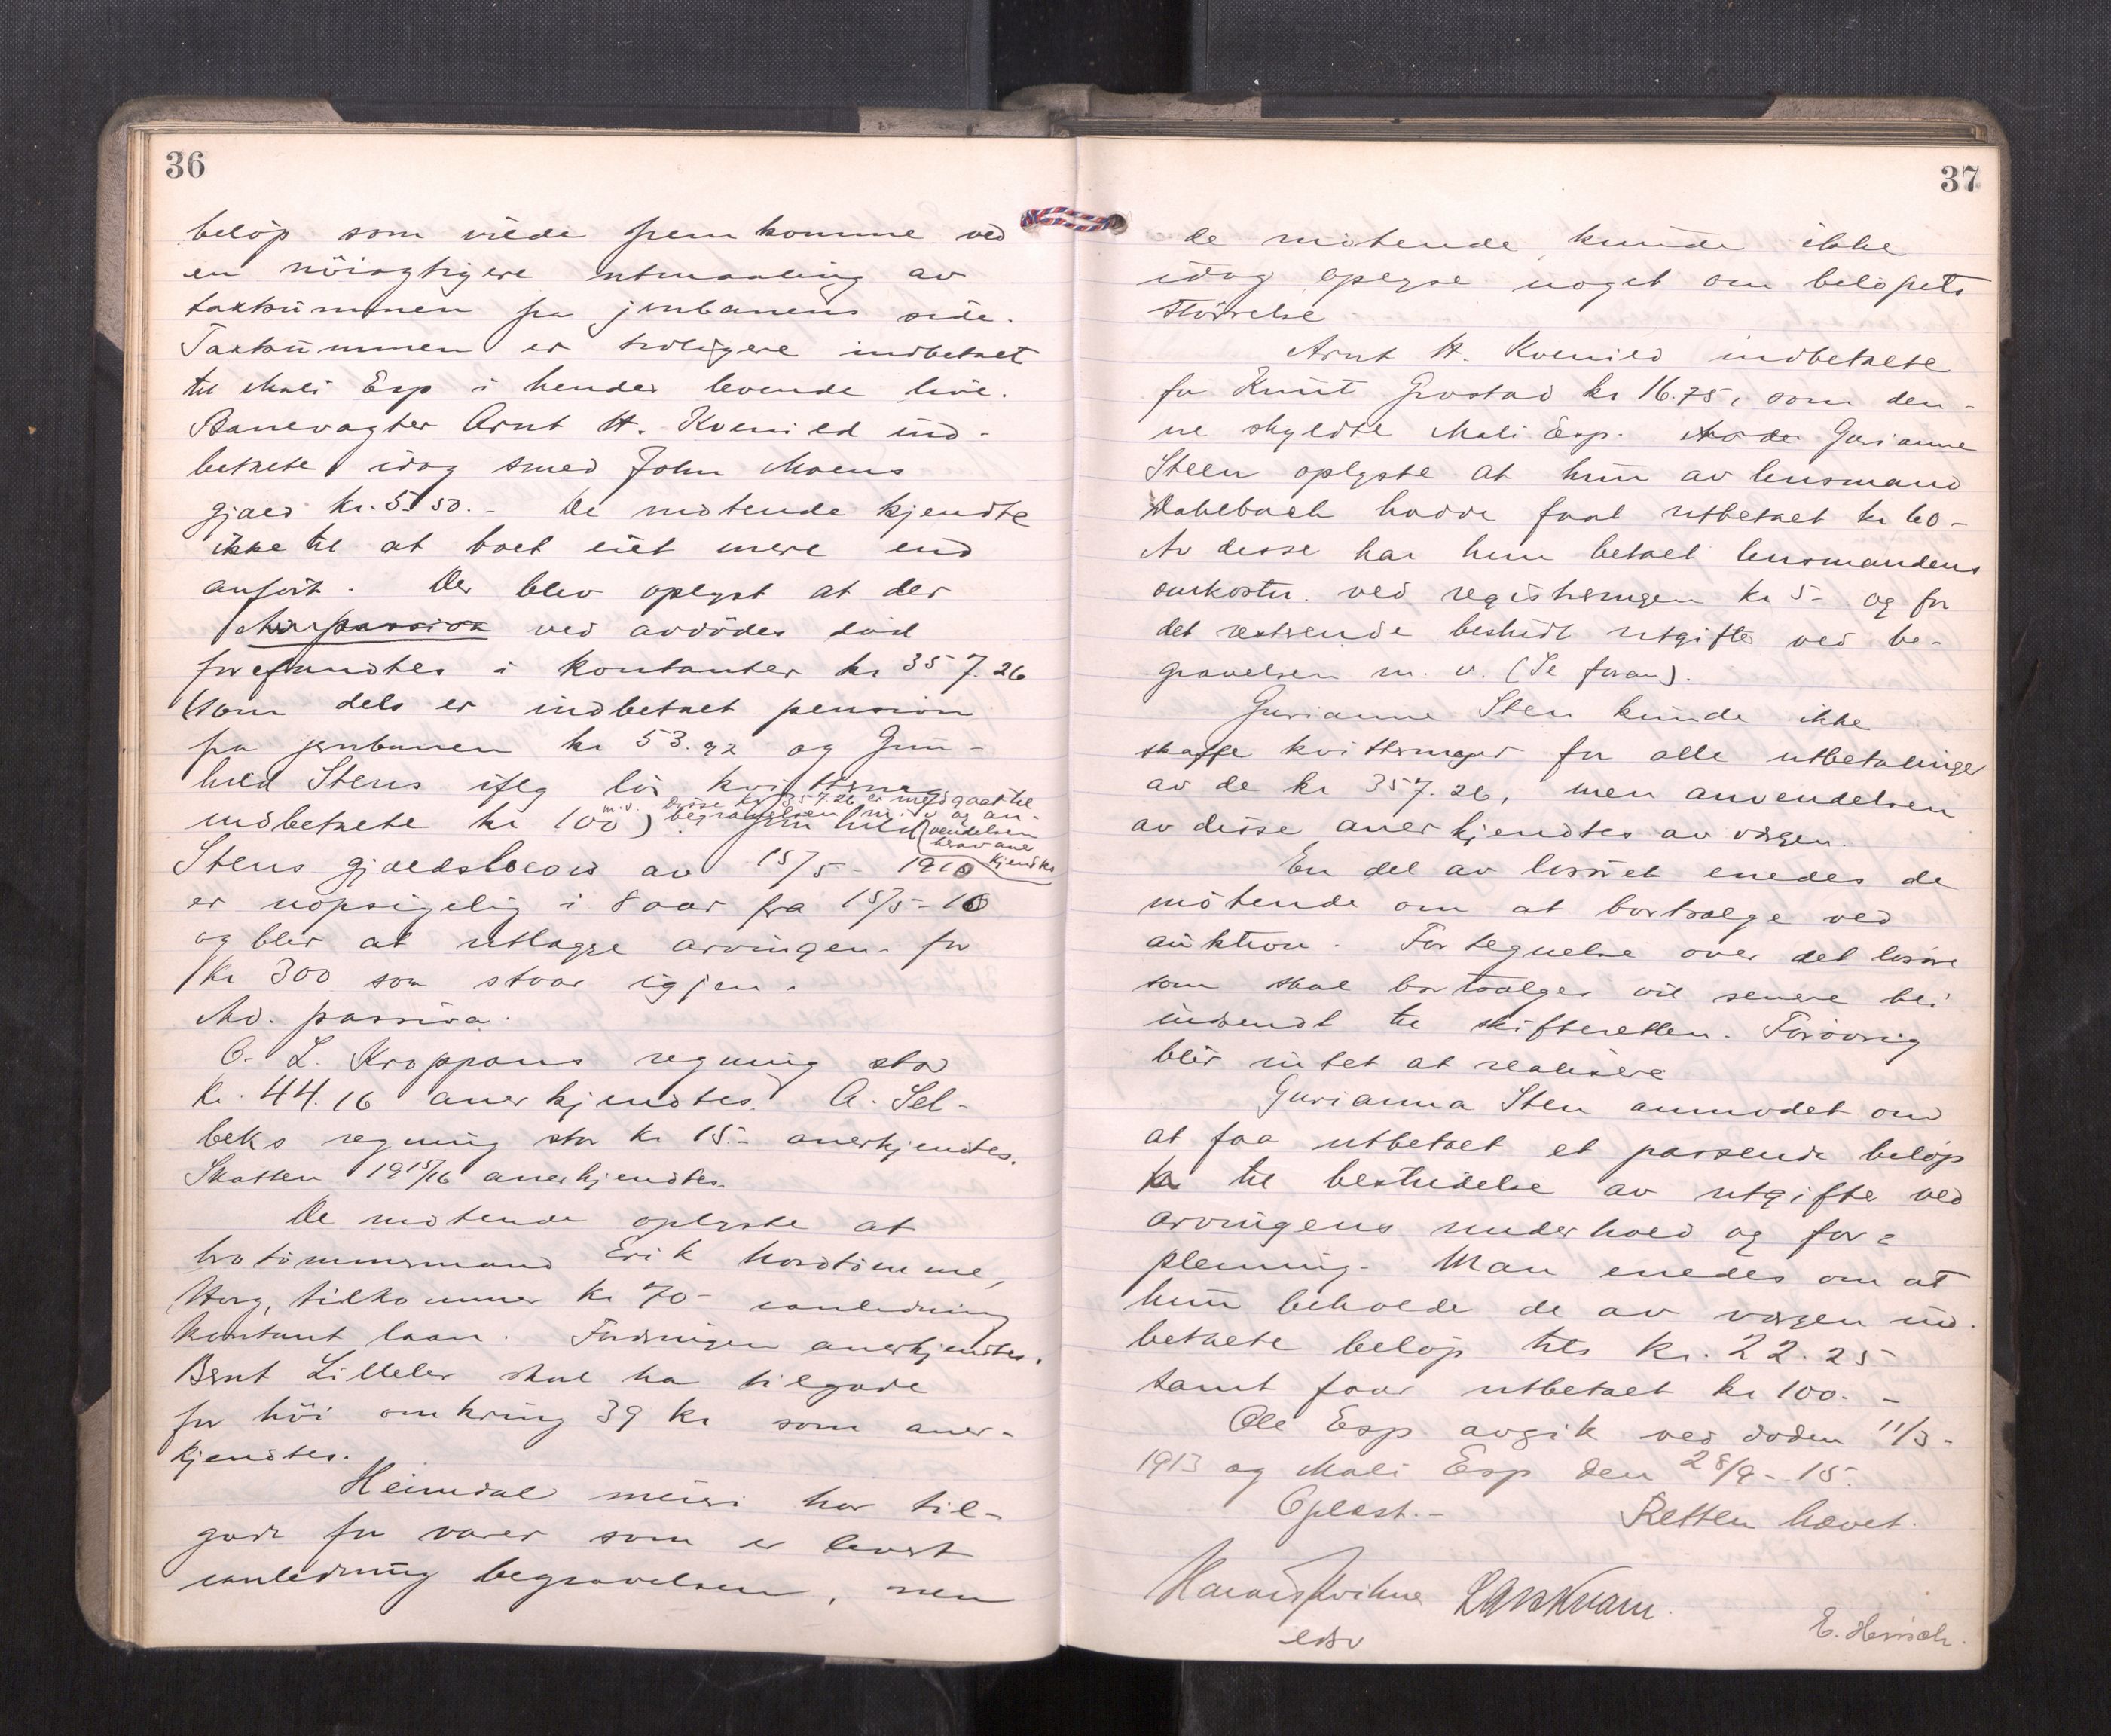 36
beløp som vilde fremkomme ved
en nöiagtigere utmaaling av
taxtsummen fra jernbanens side.
Taxtsummen er tidligere indbetalt
til Mali Esp i hendes levende live.
Banevagter Arnt H. Kvenild ind-
betalte idag smed John Moens
gjæld kr. 5.50.- De mötende kjendte
ikke til at boet eiet mere end
anfört. Der blev oplyst at der
ved avdödes död
forefandtes i kontanter kr 357.26
(som dels er indbetalt pension
fra jernbanen kr 53.92 og Gun-
hild Stens iflg lös kvittering
indbetalte kr 100 m.v.). Disse kr 357.26 er medgaat til
begravelsen m.v. og an-
vendelsen
herav aner
kjendtes
Gunhild
Stens gjældsbevis av 15/5 - 1910
er uopsigelig i 8 aar fra 15/5-10
og blir at utlægge arvingen for
Kr 300 som staar igjen.
Ad. passiva.
O. L. Kroppans regning stor
kr. 44.16 anerkjendtes. A. Sel-
beks regning stor kr 15.- anerkjendtes.
Skatten 1915/16 anerkjendtes.
De mötende oplyste at
brotömmermand Erik Nordtömme,
Horg, tilkommer kr 70- i anledning
kontant laan. Fordringen anerkjendtes.
Bernt Lilleler skal ha tilgode
for höi omkring 39 kr som aner-
kjendtes.
Heimdal meieri har til-
gode for varer som er levert
i anledning begravelsen, men
37
de mötende kunde ikke
idag oplyse noget om belöpets
störrelse
Arnt H. Kvenild indbetalte
for Knut Grostad kr 16.75, som den-
ne skyldte Mali Esp. Gurianne
Steen oplyste at hun av lensmand
Wahlbach hadde faat utbetalt kr 60-
Av disse har hun betalt lensmandens
omkostn. ved registreringen kr 5- og for
det resterende bestridt utgifter ved be-
gravelsen m. v. (Se foran).
Gurianne Sten kunde ikke
skaffe kvitteringer for alle utbetalinger
av de kr 357.26, men anvendelsen
av disse anerkjendtes av vergen.
En del av lösöret enedes de
mötende om at bortsælge ved
auktion. Fortegnelse over det lösöre
som skal bortsælges vil senere bli
indsendt til skifteretten. Forövrig
blir intet at realisere
Gurianna Sten anmodet om
at faa utbetalt et passende belöp
til bestridelse av utgifter ved
arvingens underhold og for=
pleining. Man enedes om at
hun beholder de av vergen ind-
betalte belöp tils kr. 22.25
samt faar utbetalt kr 100.-
Ole Esp avgik ved döden 11/3-
1913 og Mali Esp den 28/9-15.
Oplæst.- Retten hævet.
Lars Kvam.
edsv